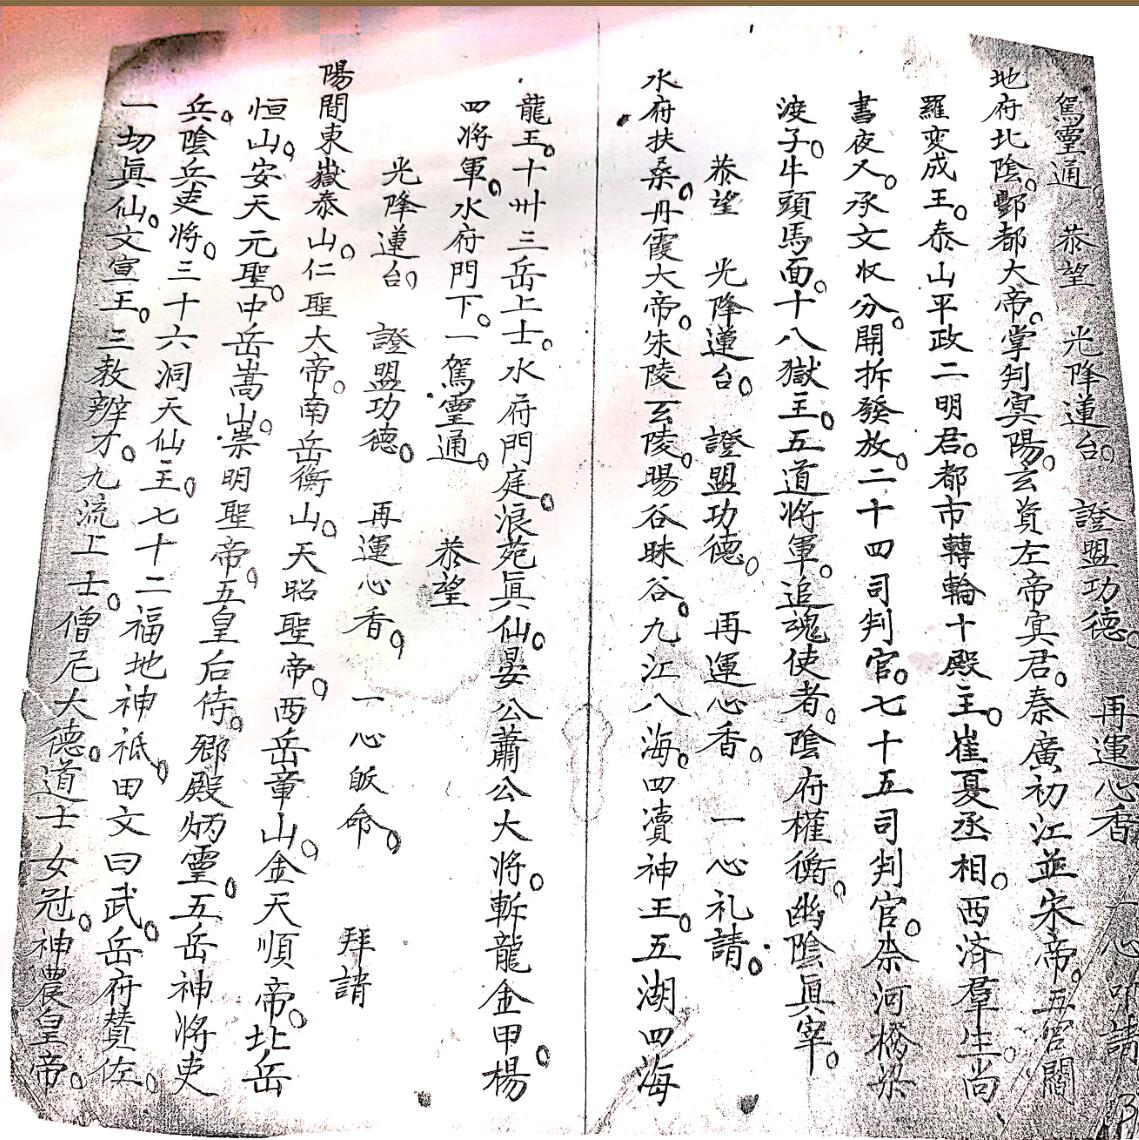 駕靈通 恭望 光降蓮台。 證盟功德。 再運心香 一心 請
地府北陰。酆都大帝。掌判冥陽。玄資左帝冥君。秦廣初江並宋帝。五官閻
羅变成王。泰山平政二明君。都市轉輪十殿主。崔夏丞相。西済羣生。尚
書夜乂。承文収分。開拆發放。二十四司判官。七十五司判官。柰河橋梁
渡子。牛頭馬面。十八獄主。五道將軍。追魂使者。陰府權衡。幽陰眞宰。
恭望 光降蓮台。 證盟功德。 再運心香。 一心礼請。
水府扶桑。丹霞大帝。朱陵玄陵。暘谷昧谷。九江八海。四瀆神王。五湖四海
龍王。十卅三岳上士。水府門庭。浪苑眞仙。晏公蕭公大将。斬龍金甲。楊
四将軍。水府門下。一駕靈通。 恭望
光降蓮台。 證盟功德。 再運心香。 一心皈命。 拜請
陽間東嶽泰山。仁聖大帝。南岳衡山。天昭聖帝。西岳華山。金天順帝。北岳
恒山。安天元聖。中岳嵩山。崇明聖帝。五皇后侍。郷殿炳靈。五岳神將吏
兵。陰兵吏将。三十六洞天仙主。七十二福地神祇。田文曰武。岳府賛佐。
一切眞仙。文宣王。三教辨才。九流上士。僧尼大德。道士女冠。神農皇帝。